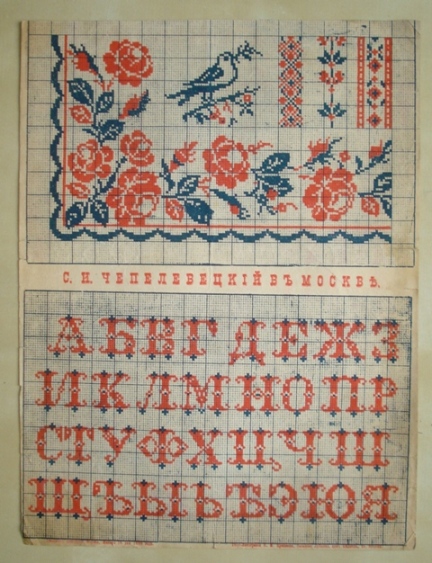 С. И. ЧЕПЕЛЕВЕЦКІЙ ВЪ МОСКВѢ.
А Б В Г Д Е Ж З
И К Л М Н О П Р
С Т У Ф Х Ц Ч Ш
Щ Ъ Ы Ь Ѣ Э Ю Я